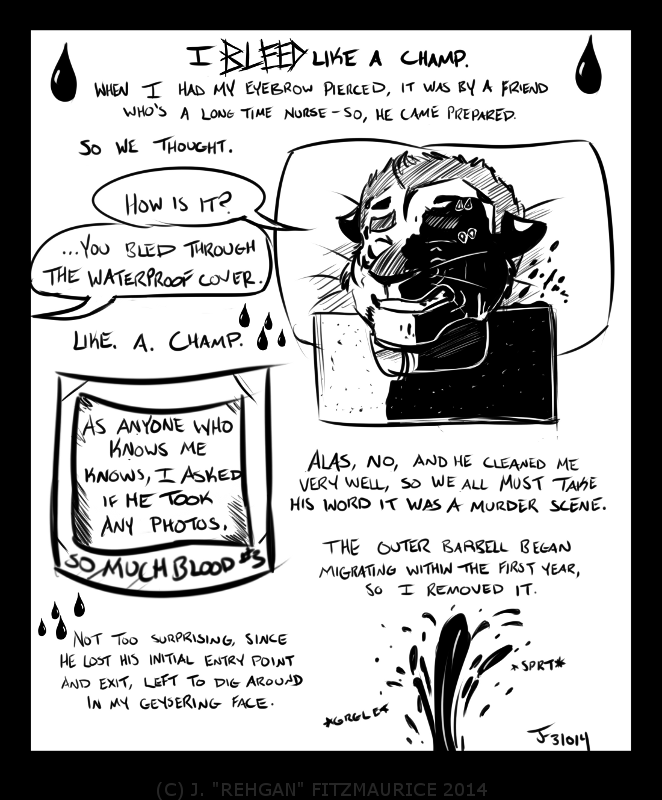 I BLEED LIKE A CHAMP.
WHEN I HAD MY EYEBROW PIERCED, IT WAS BY A FRIEND
WHO'S A LONG TIME NURSE - SO, HE CAME PREPARED.
SO WE THOUGHT.
HOW IS IT?
...YOU BLED THROUGH
THE WATERPROOF COVER.
LIKE. A. CHAMP.
AS ANYONE WHO
KNOWS ME
KNOWS, I ASKED
IF HE TOOK
ANY PHOTOS.
SO MUCH BLOOD #3
ALAS, NO, AND HE CLEANED ME
VERY WELL, SO WE ALL MUST TAKE
HIS WORD IT WAS A MURDER SCENE.
THE OUTER BARBELL BEGAN
MIGRATING WITHIN THE FIRST YEAR,
SO I REMOVED IT.
NOT TOO SURPRISING, SINCE
HE LOST HIS INITIAL ENTRY POINT
AND EXIT, LEFT TO DIG AROUND
IN MY GEYSERING FACE.
*SPRT*
*GRGLE*
J 31014
(C) J. "REHGAN" FITZMAURICE 2014